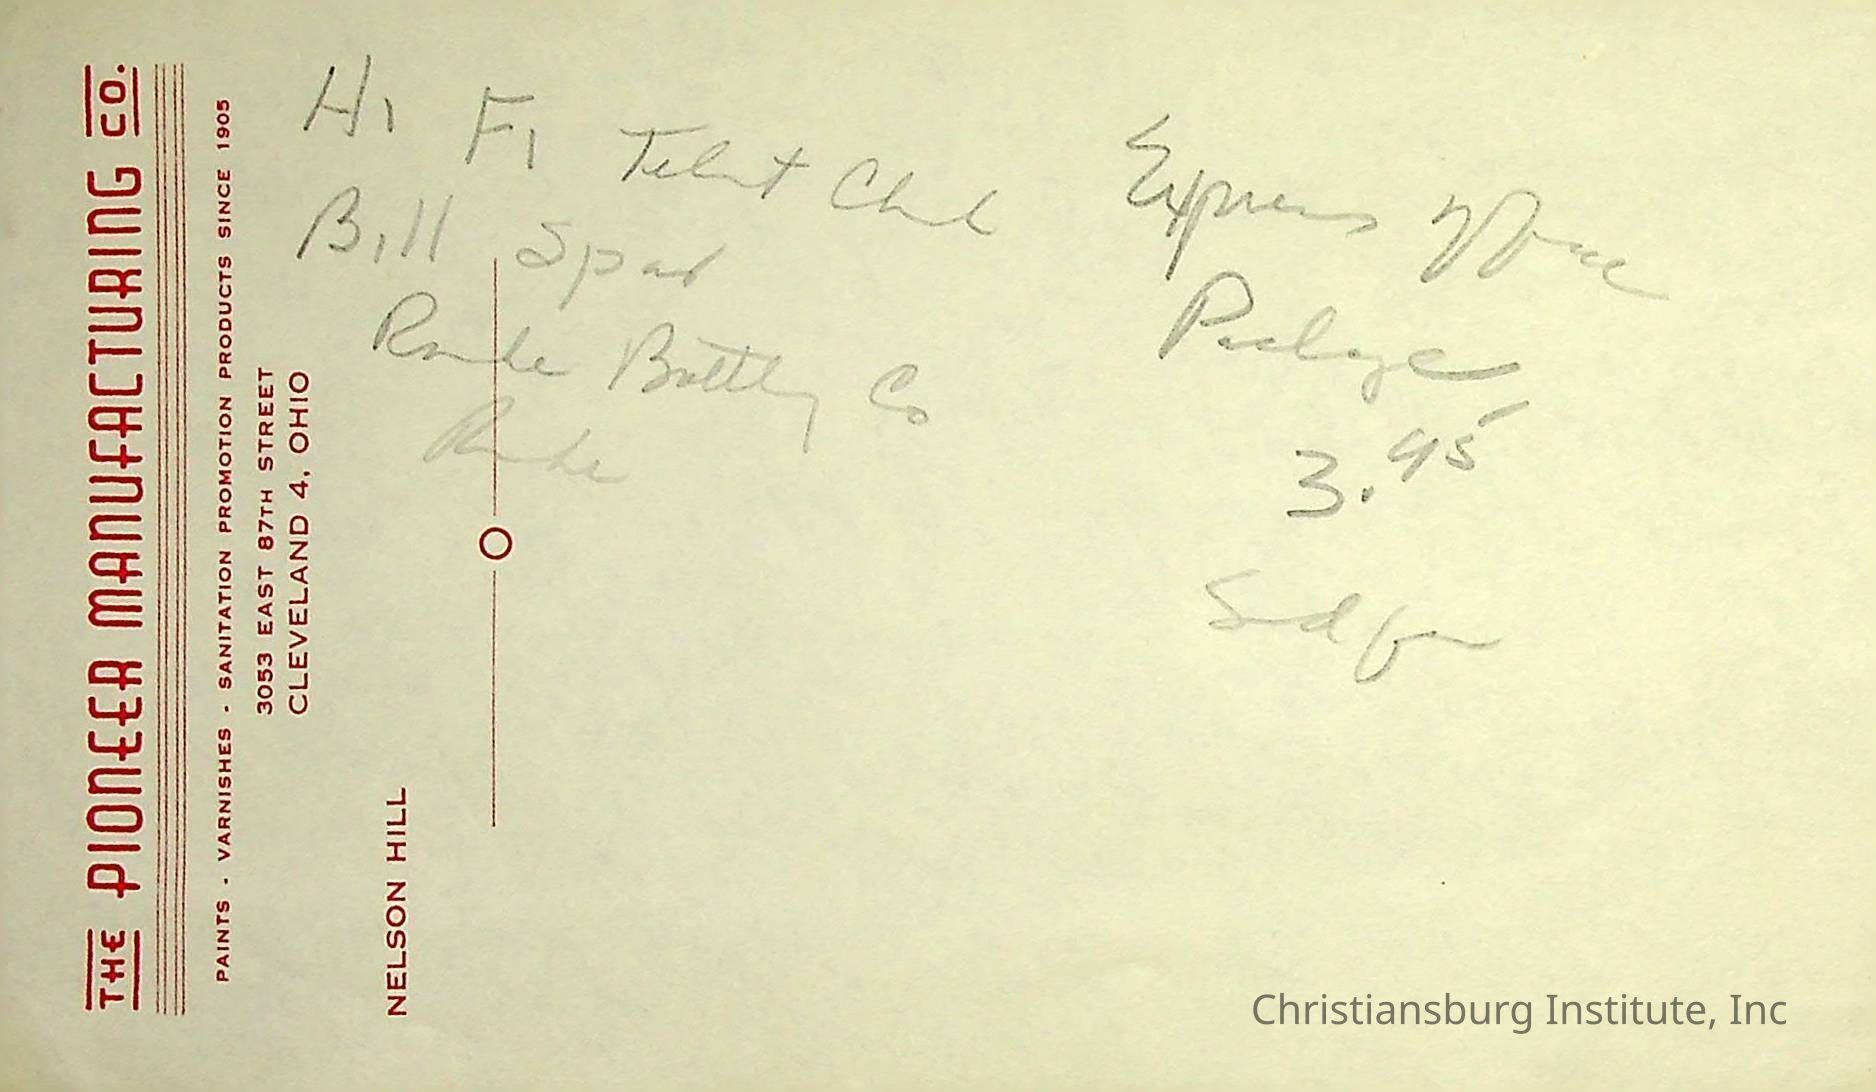 THE PIONEER MANUFACTURING CO.
PAINTS - VARNISHES - SANITATION PROMOTION PRODUCTS SINCE 1905
3053 EAST 87TH STREET
CLEVELAND 4, OHIO
NELSON HILL
Hi Fi Talent Club
Bill
Bottling Co
Express
Package
3.95
Send for
Christiansburg Institute, Inc